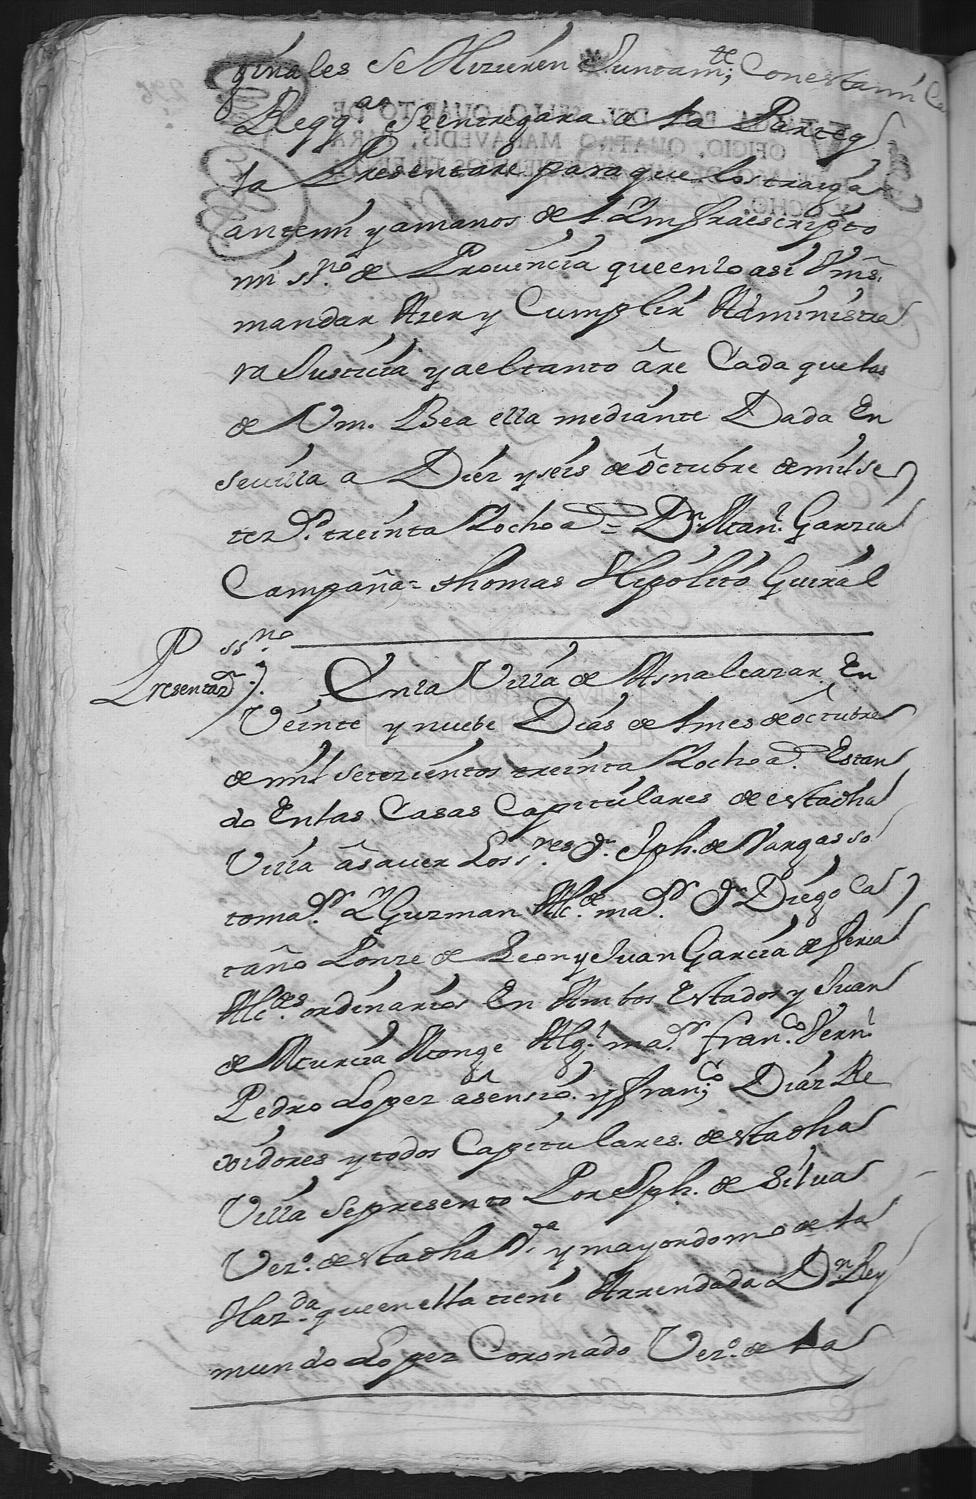 ginales se Hizieren Juntamte; Con esta mi Ca
Reqqa Se entregara a la Parte q
la Presentare para que los traiga
ante mi y a manos del Ynfraescripto
mi ssno de Provincia que en lo asi Vms.
mandar Azer y Cumplir Administra
ra Justicia y a el tanto âre Cada que las
de Vm. Bea ella mediante Dada En
sevilla a Diez y seis de Octubre de mil se
tezs. treinta Y ocho as = Dn Man.l Garzia
Campaña = thomas Hipólito Guiral
ssno
Presentazn). En la Villa de Asnalcazar En
Veinte y nuebe Dias del mes de Octubre
de mil setezientos treinta Y ocho as. Estan
do En las Casas Capitulares de esta dha
Villa âsaver Los sres Dn Jph. de Vargas so
tomar. y Guzman Alcde. mar. Dn Diego Cas
taño Ponze de Leon y Juan Garcia de feria
Alcdes. ordinarios En Ambos Estados y Juan
de Murcia Monge Algl. mar. franco. Vernl
Pedro Lopez asensio. y franco; Diaz Re
xidores y todos Capitulares. de esta dha
Villa se presento Por Jph. de Silva
Vezo. de esta dha Va. y mayordomo de la
Hazda. que en ella tiene Arrendada Dn Rey
mundo Lopez Coronado Vezo. de la